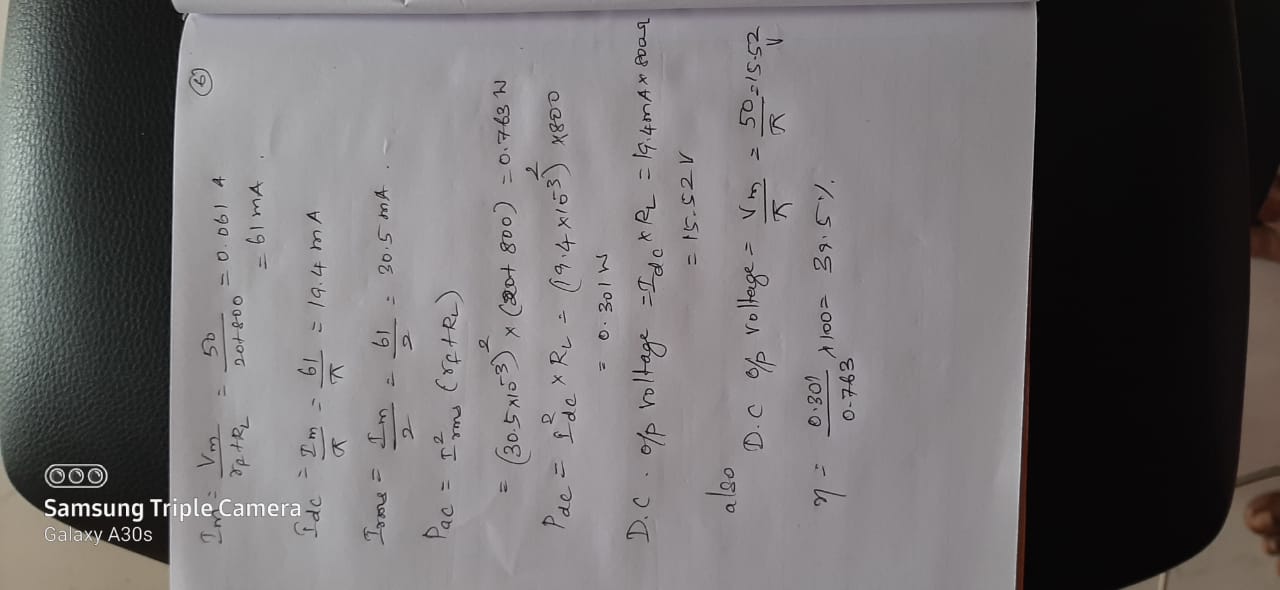 ⑥
Im = Vm / (rf+RL) = 50 / (20+800) = 0.061 A
= 61 mA.
Idc = Im/π = 61/π = 19.4 mA
Irms = Im/2 = 61/2 = 30.5 mA.
Pac = I²rms (rf+RL)
= (30.5×10⁻³)² × (20+800) = 0.763 W
Pdc = I²dc × RL = (19.4×10⁻³)² ×800
= 0.301 W
D.C. o/p voltage = Idc × RL = 19.4mA×800Ω
= 15.52 V
also
D.C o/p voltage = Vm/π = 50/π = 15.52 V
η = 0.301/0.763 ×100 = 39.5 %.
Samsung Triple Camera
Galaxy A30s